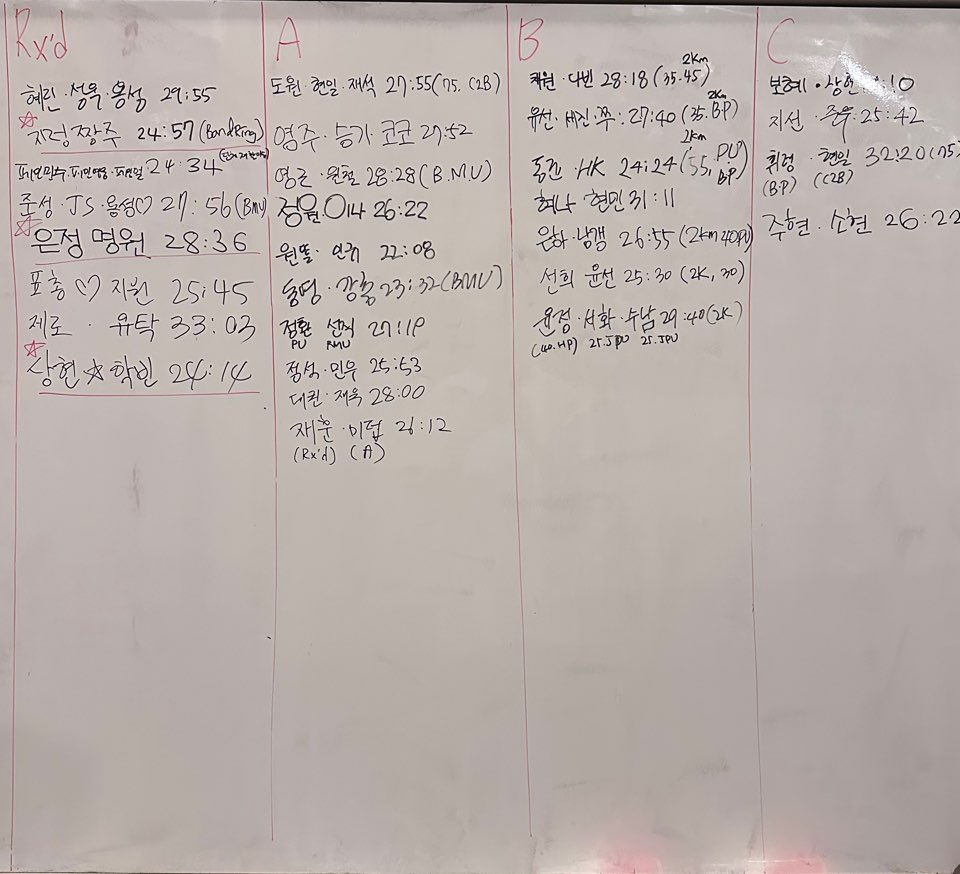 Rx'd
혜린 · 성욱 · 용섭 29:55
☆ 지영 짱주 24:57 (Band Ring)
24:34
준성 · JS · 용성♡ 27:56 (BMU)
☆ 은정 명원 28:36
표총 ♡ 지원 25:45
제로 · 유탁 33:03
☆ 상현 ☆ 학빈 24:14
A
도원 · 현일 · 재석 27:55 (75. C2B)
영주 · 승가 · 코코 27:52
영근 · 원철 28:28 (B.M.U)
정원 이나 26:22
원뚤 · 인규 22:08
동명 · 강훈 23:32 (BMU)
정환 선직 27:19
PU RMU
정석 · 민우 25:53
대권 · 재욱 28:00
재훈 · 미접 26:12
(Rx'd) (A)
B
2km
채원 · 다빈 28:18 (35. 45)
2km
유선 · 세진 · 쭈 : 27:40 (35. BP)
2km
동진 · HK 24:24 (55, PU BP)
혜나 현민 31:11
은하 · 남갱 26:55 (2km 40PU)
선희 윤선 25:30 (2K, 30)
윤정 · 서화 · 수남 29:40 (2K)
(40. HP) 25.JPU 25.JPU
C
보혜 · 상현 :10
지선 · 준우 25:42
휘영 · 현일 32:20 (75)
(BP) (C2B)
주현 · 소현 26:22